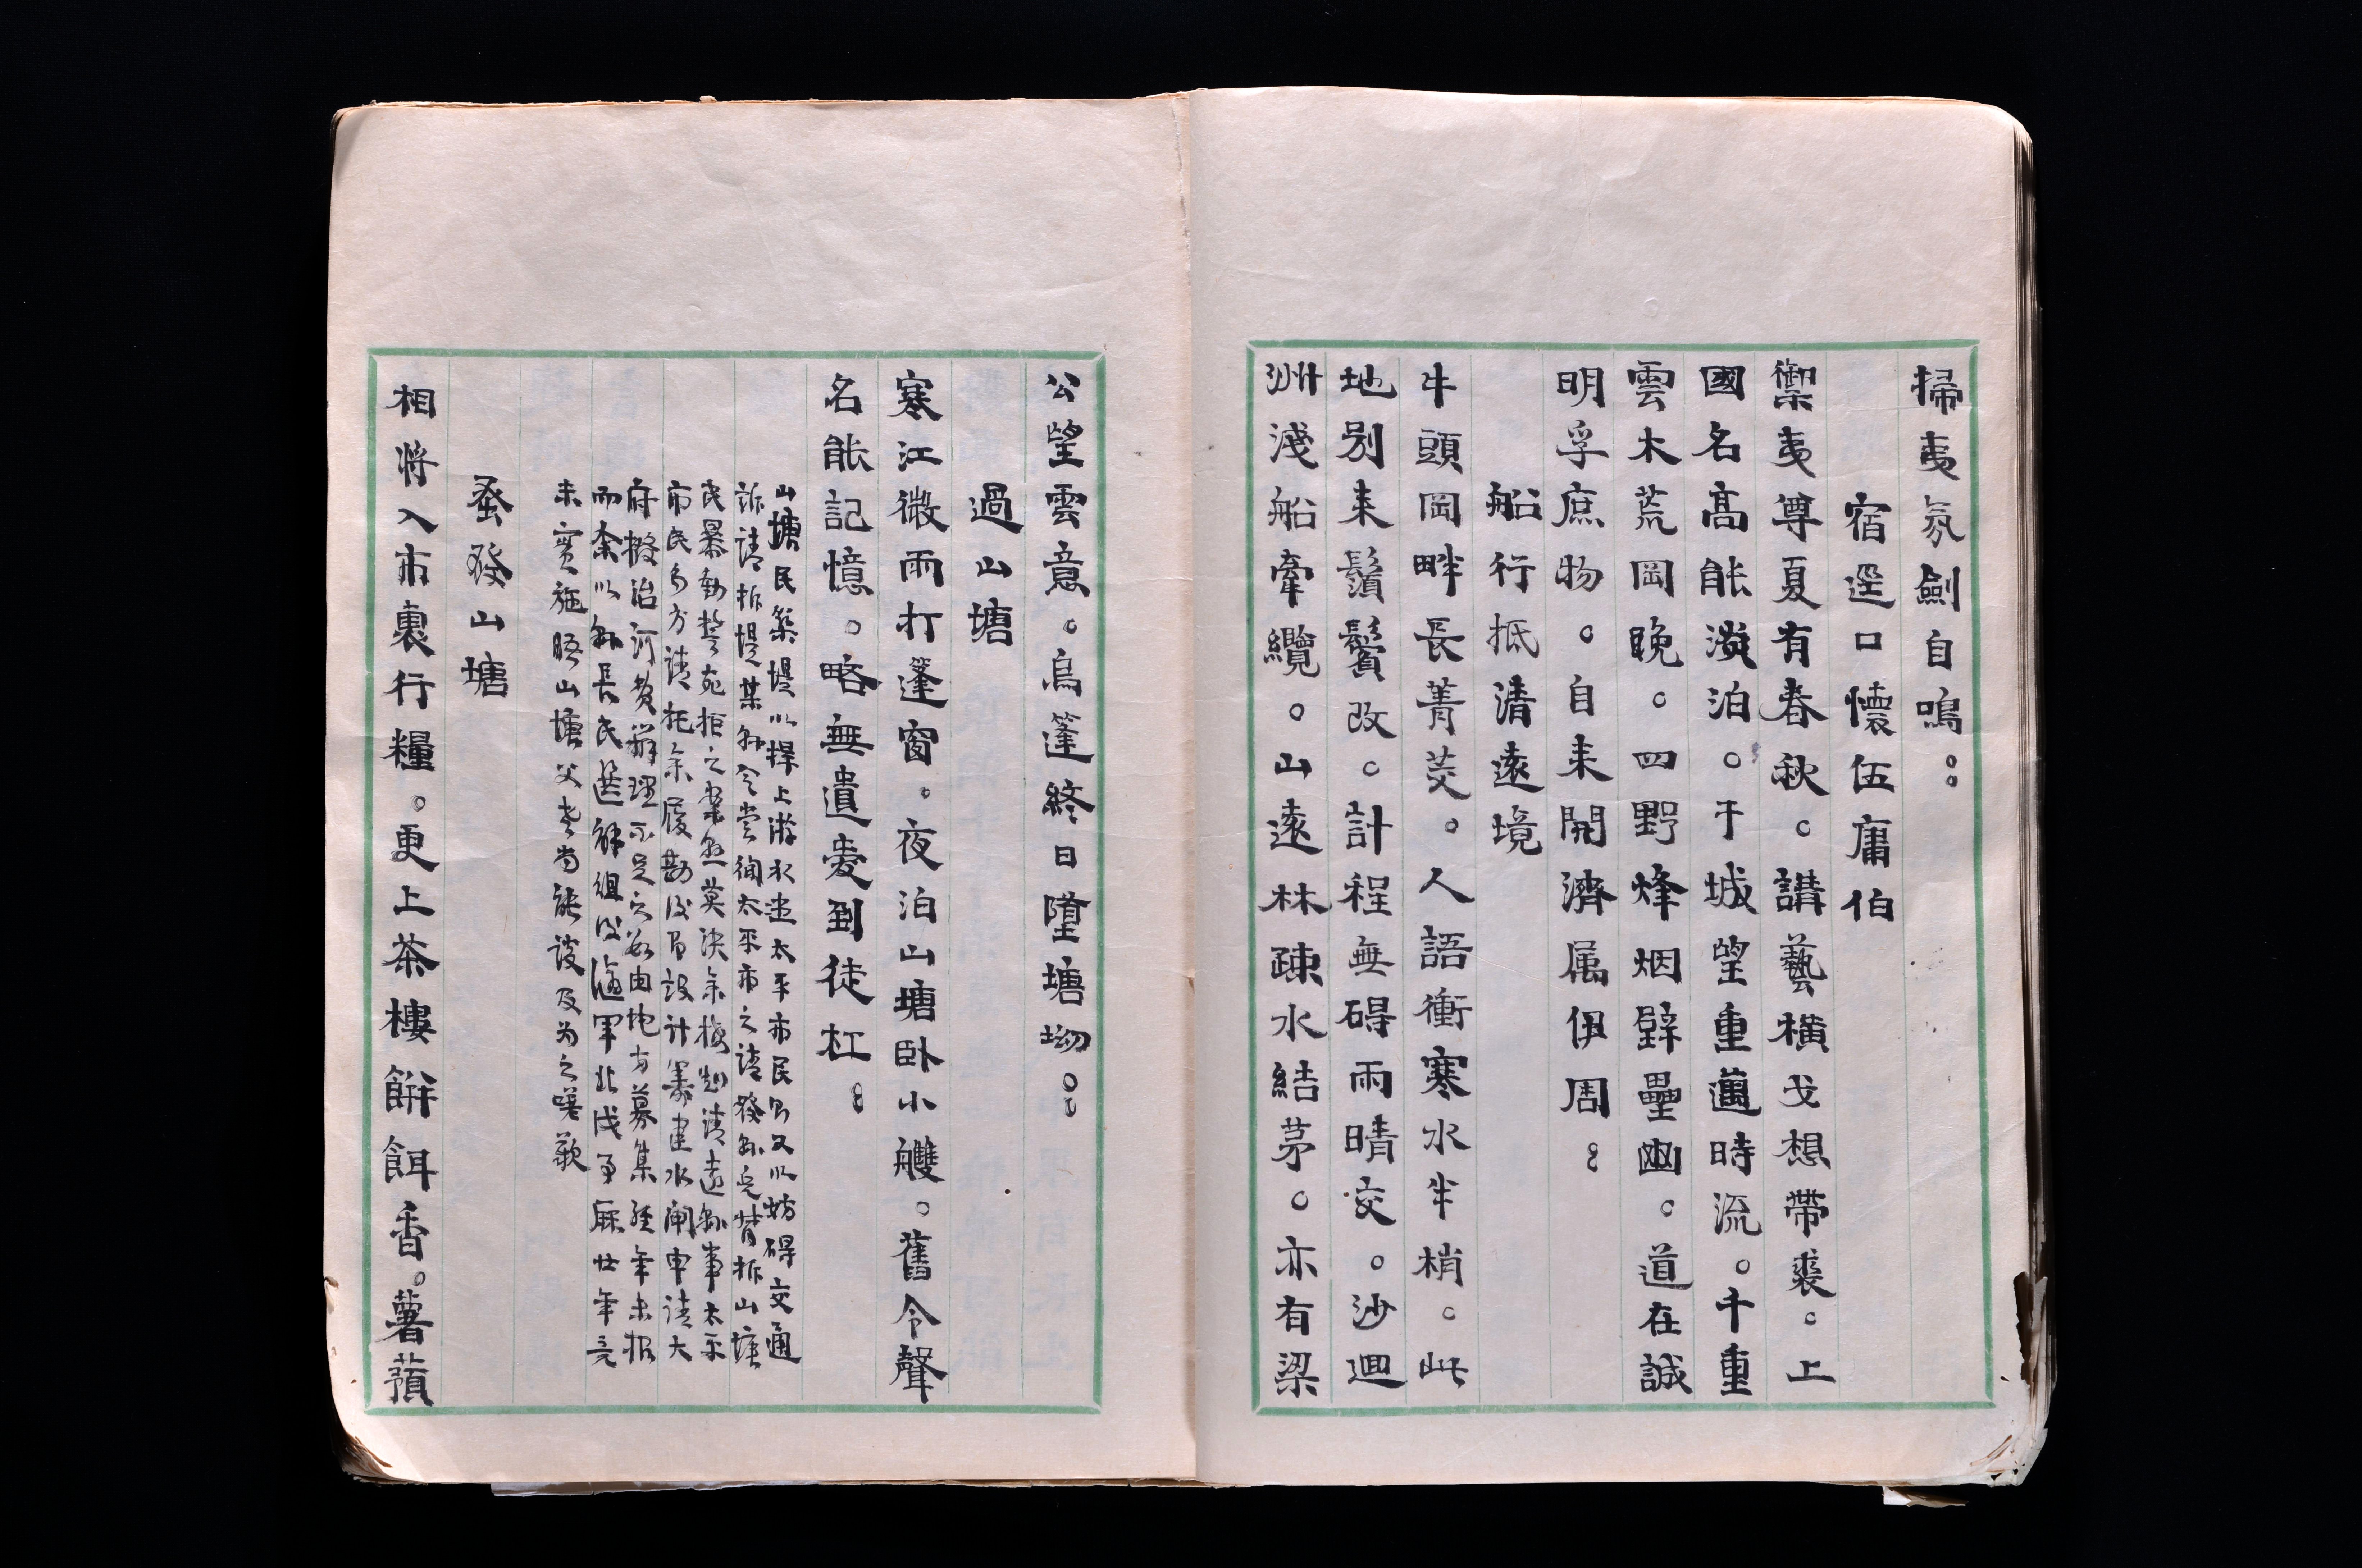 掃夷氛劍自鳴。。
宿逕口懷伍庸伯
禦夷尊夏有春秋。講藝橫戈想帶裘。上
國名高能淡泊。干城望重邁時流。千重
雲木荒岡晚。四野烽烟壁壘幽。道在誠
明孚庶物。自来開濟属伊周。。
船行抵清遠境
牛頭岡畔長菁茭。人語衝寒水半梢。此
地別来鬚鬢改。計程無碍雨晴交。沙迴
洲淺船牽纜。山遠林疎水結茅。亦有梁
公望雲意。烏篷終日墮塘坳。。
過山塘
寒江微雨打篷窗。夜泊山塘卧小艭。舊令聲
名能記憶。略無遺愛到徒杠。。
山塘民築堤以捍上游水患太平市民則又以妨碍交通
訴請拆堤某縣令嘗徇太平市之請發縣兵背拆山塘
民暴動誓死拒之案懸莫決余權知清遠縣事太平
市民多方請托余履勘後乃設計籌建水閘申請大
府撥治河費辦理不足之數由地方募集經年未报
而余以縣長民選解組後隨軍北伐事歷廿年竟
未實施晤山塘父老尚能談及为之嘆歎
蚤發山塘
相将入市裹行糧。更上茶樓餅餌香。薯蕷